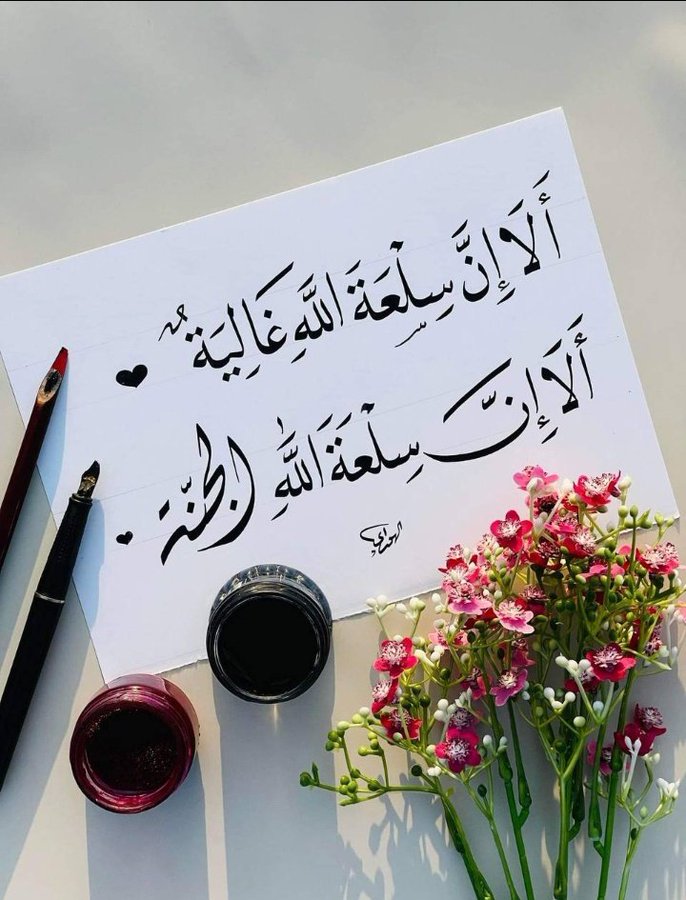 أَلَا إِنَّ سِلْعَةَ اللَّهِ غَالِيَةٌ
أَلَا إِنَّ سِلْعَةَ اللَّهِ الجَنّة